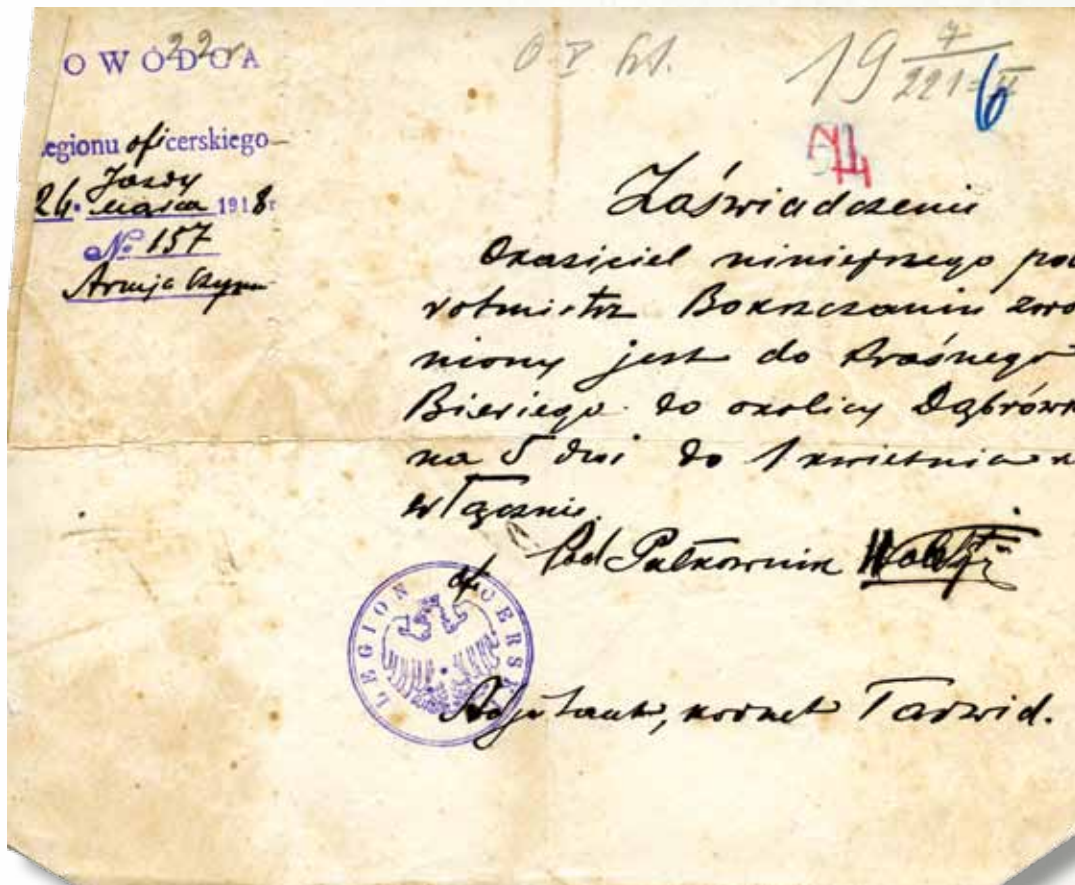 OWÓDCA
22
O. V
19 7/221-II
6
.egionu oficerskiego
Jazdy
26. marca 1918 r
№ 157
Armja
Zaświadczenie
Okaziciel niniejszego pod
rotmistrz Bokszczanin zwo
niony jest do Kraśnego
do okolicy Dąbrówk
na 5 dni do 1 kwietnia
włącznie.
Pod Pułkownik
LEGION OFICERSK
Adjutant, kornet Tarwid.